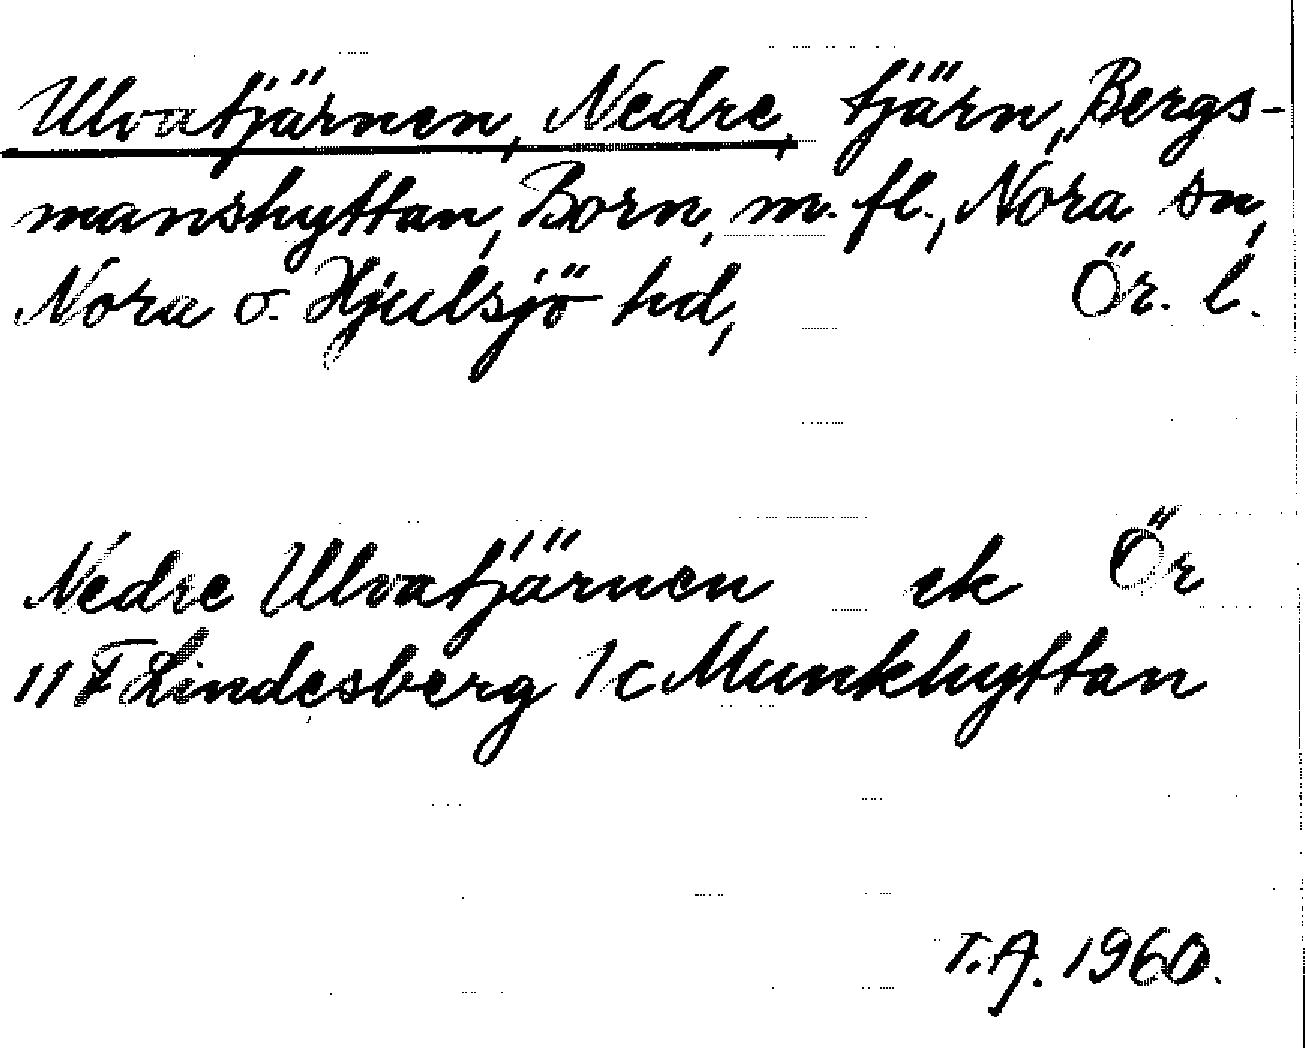 Ulvatjärnen, Nedre, tjärn, Bergs-
manshyttan, Born, m. fl., Nora sn,
Nora o. Hjulsjö hd, Ör. l.
Nedre Ulvatjärnen ek Ör
11 F Lindesberg 1c Munkhyttan
T.A. 1960.